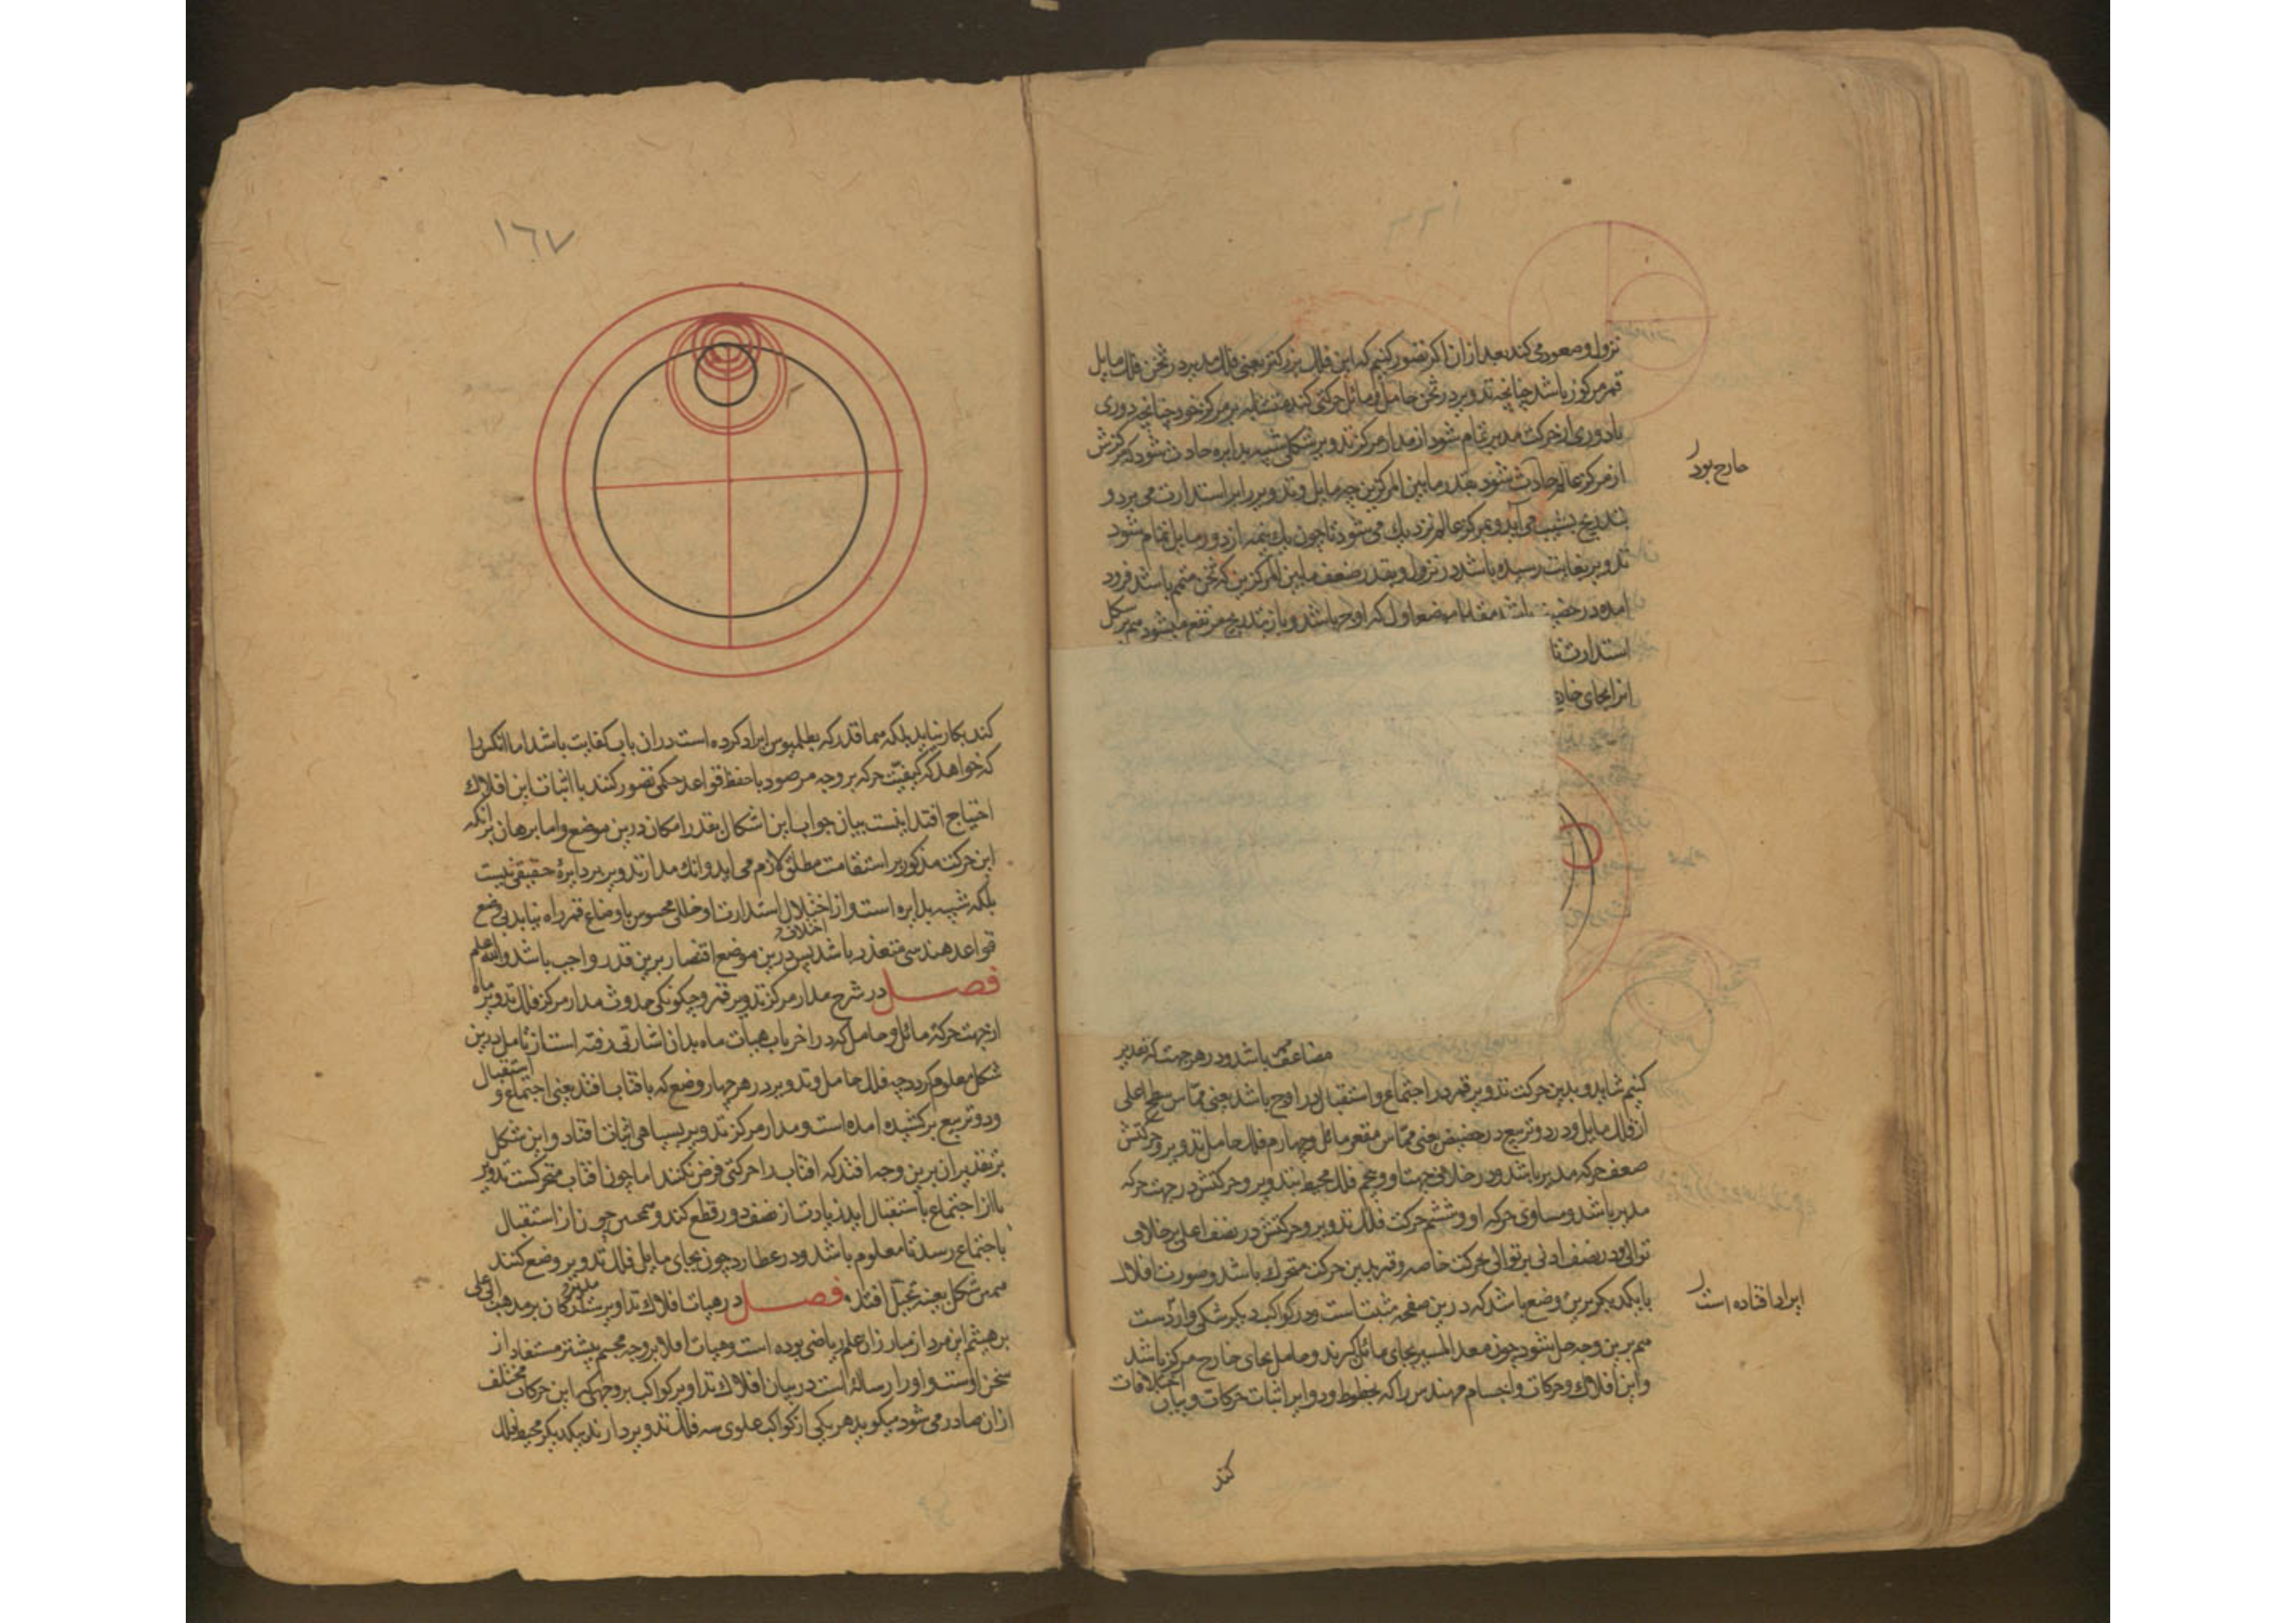 نزول و صعود می‌کند بعد ازان اکر تصور کنیم که این فلک بزرکتر یعنی فلک مدیر در ثخن فلک مایل
قمر مرکوز باشد چنانچه تدویر در ثخن حامل و مائل حرکتی کند متشابه بر مرکز خود چنانچه دوری
با دوری از حرکت مدیر تمام شود از مدار مرکز تدویر شکلی شبیه بدایره حادث شود که مرکزش
از مرکز عالم حادث شود بقدر ما بین المرکزین چه مایل و تدویر را بر استدارت می برد و
خارج بود
بتدریج بشیب می آید و بمرکز عالم نزدیک می شود تا چون یک نیمه از دور مایل تمام شود
تدویر بغایت رسیده باشد در نزول و بقدر ضعف ما بین المرکزین که ثخن متمم باشد فرود
امده در حضیض باشد مقابل موضع اول که اوج باشد و باز بتدریج مرتفع میشود هم بر شکل
استدارت تا
مضاعف باشد و در هر جهت که تقدیر
کنیم شاید و بدین حرکت تدویر قمر در اجتماع و استقبال در اوج باشد یعنی مماس سطح اعلی
از فلک مایل و در دو تربیع در حضیض یعنی مماس مقعر مائل و چهارم فلک حامل تدویر و حرکتش
ضعف حرکه مدیر باشد و در خلاف جهت او و پنجم فلک محیط بتدویر و حرکتش در جهت حرکه
مدیر باشد و مساوی حرکه او و ششم حرکت فلک تدویر و حرکتش در نصف اعلی بر خلاف
توالی و در نصف ادنی بر توالی بحرکت خاصه و قمر بدین حرکت متحرک باشد و صورت افلاک
با یکدیکر برین وضع باشد که درین صفحه مثبت است و در کواکب دیکر شکی وارد است
ایراد افتاده است
هم برین وجه حل شود چون معدل المسیر بجای مائل کیرند و حامل بجای خارج مرکز باشد
و این افلاک و حرکات و اجسام مهندس را که بخطوط و دوایر اثبات حرکات و بیان اختلافات
کند
١٦٧
کند بکار نیاید بلکه همانقدر که بطلمیوس ایراد کرده است دران باب کفایت باشد اما انکس را
که خواهد که کیفیت حرکه بر وجه مرصود با حفظ قواعد حکمی تصور کنند با اثبات این افلاک
احتیاج افتد اینست بیان جواب این اشکال بقدر امکان درین موضع و اما برهان بر انکه
این حرکت مذکور بر استقامت مطلق لازم می اید و انک مدار تدویر بر دایرهٔ حقیقی نیست
بلکه شبیه بدایره است و از اختلال استدارت او خللی محسوس باوضاع قمر راه نیابد بی وضع
اختلاف
قواعد هندسی متعذر باشد پس درین موضع اقتصار برین قدر واجب باشد و الله اعلم
فصل در شرح مدار مرکز تدویر قمر و چکونکی حدوث مدار مرکز فلک تدویر ماه
از جهت حرکهٔ مائل و حامل که در اخر باب هیأت ماه بدان اشارتی رفته است از تامل درین
شکل معلوم کردد چه فلک حامل و تدویر در هر چهار وضع که با فتاب افتد یعنی اجتماع و استقبال
و دو تربیع بر کشیده امده است و مدار مرکز تدویر بسیاهی اثبات افتاد و این شکل
بر تقدیر ان برین وجه افتد که افتاب را حرکتی فرض نکنند اما چون افتاب متحرکست تدویر
تا از اجتماع باستقبال اید زیادت از نصف دور قطع کند و همچنین چون از استقبال
باجتماع رسد تا معلوم باشد و در عطارد چون بجای مایل فلک تدویر وضع کنند
همین شکل بعینه تخیل افتد، فصل در هیأت افلاک تداویر ستارکان بر مذهب ابی علی
بر هیثم این مرد از مبارزان علم ریاضی بوده است و هیأت افلاک بر وجه مجسم بیشتر مستفاد از
سخن اوست و او را رساله است در بیان افلاک تداویر کواکب بر وجهی که این حرکات مختلف
ازان صادر می شود میکوید هر یکی از کواکب علوی سه فلک تدویر دارند یکدیکر محیط فلک